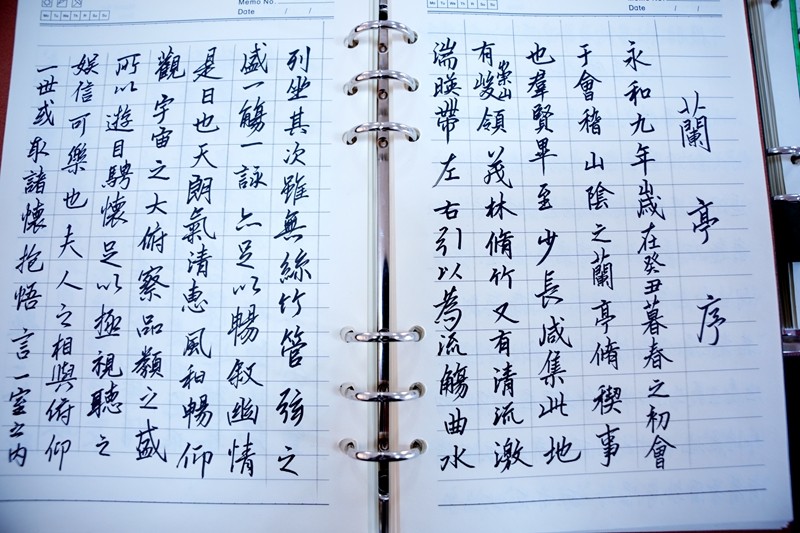 Memo No
Mo Tu We Th Fr Sa Su
Date / /
Mo Tu We Th Fr Sa Su
Date / /
蘭亭序
永和九年歲在癸丑暮春之初會
于會稽山陰之蘭亭脩稧事
也羣賢畢至少長咸集此地
有崇山峻領茂林脩竹又有清流激
湍暎帶左右引以為流觴曲水
列坐其次雖無絲竹管弦之
盛一觴一詠亦足以暢敘幽情
是日也天朗氣清惠風和暢仰
觀宇宙之大俯察品類之盛
所以遊目騁懷足以極視聽之
娛信可樂也夫人之相與俯仰
一世或取諸懷抱悟言一室之内